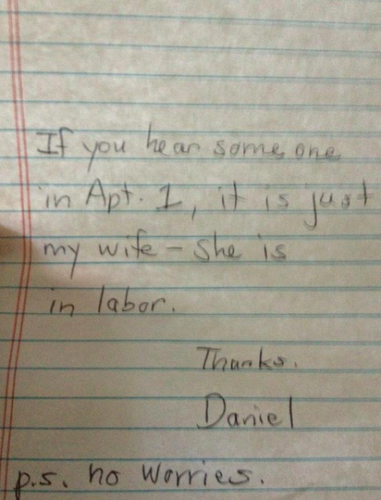 If you hear some one
in Apt. 1, it is just
my wife – she is
in labor.
Thanks.
Daniel
p.s. no worries.